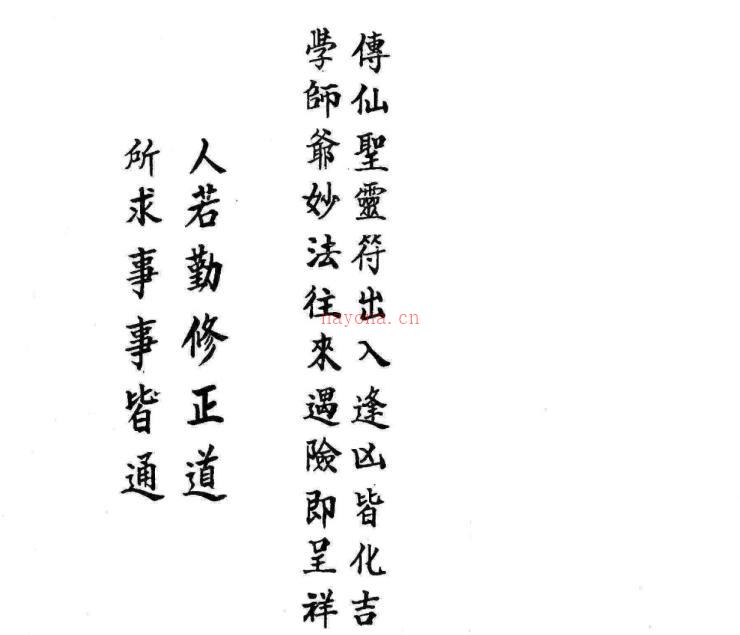 傳仙聖靈符出入逢凶皆化吉
學師爺妙法往來遇險即呈祥
人若勤修正道
所求事事皆通
nayona.cn